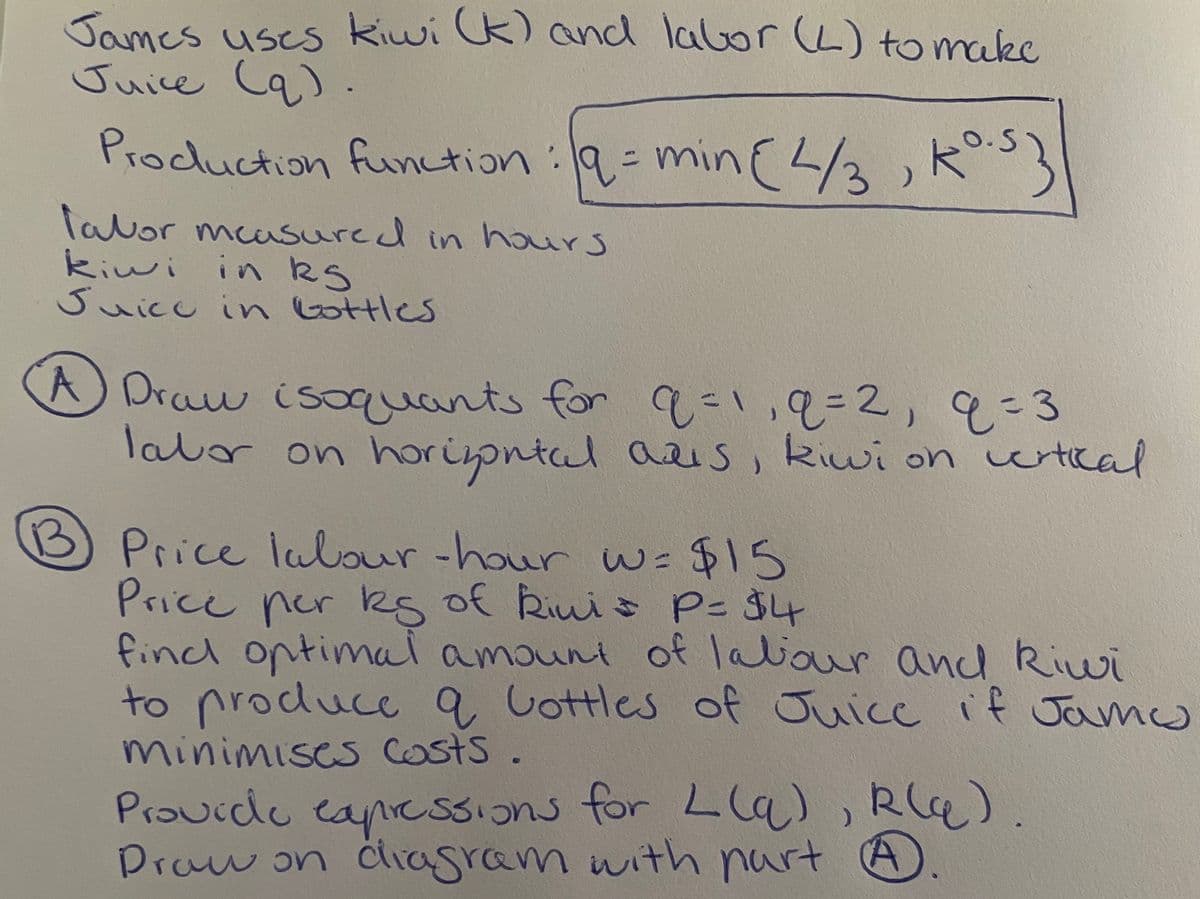 James uses kiwi (k) and labor (L) to make
Juice (q).
Production function : q = min{L/3 , k^0.5}
labor measured in hours
kiwi in kg
Juice in bottles
A Draw isoquants for q=1, q=2, q=3
labor on horizontal axis, kiwi on vertical
B Price labour-hour w= $15
Price per kg of kiwis P= $4
find optimal amount of labour and kiwi
to produce q bottles of Juice if James
minimises costs.
Provide expressions for L(q), k(q).
Draw on diagram with part A.